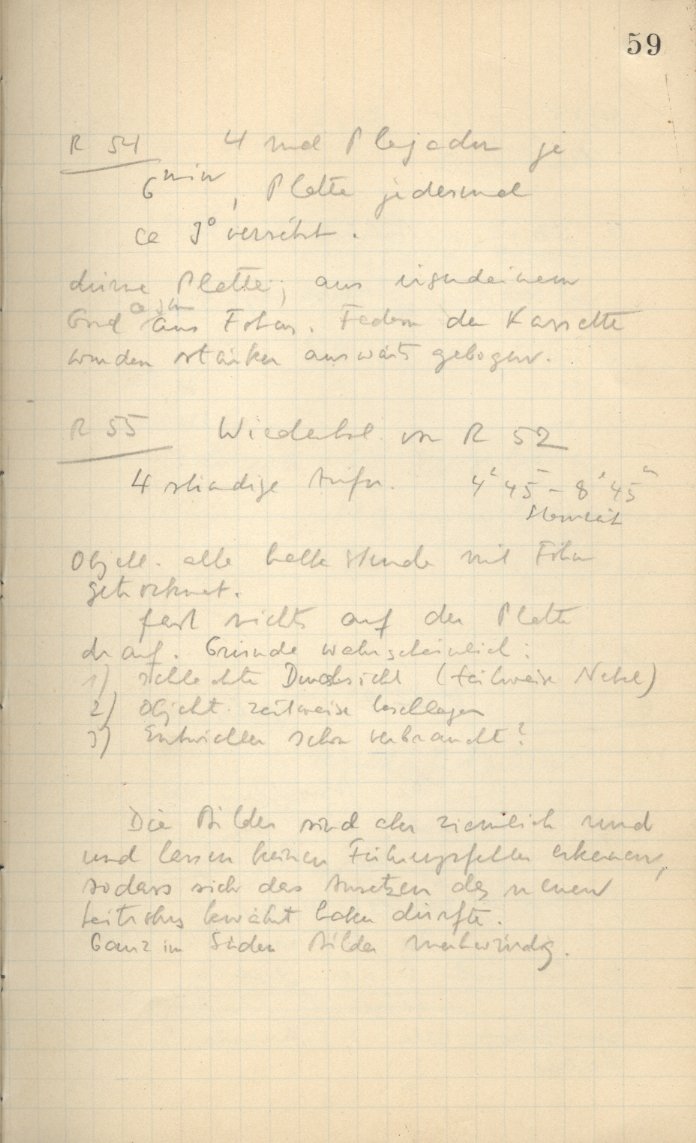 59
R 54 4 mal Plejaden je
6 min, Platte jedesmal
ca 3° versetzt.
dünne Platte; aus irgendeinem
Grund aus Fokus. Federn der Kassette
wurden stärker auswärts gebogen.
R 55 Wiederhol. von R 52
4 stündige Aufn. 4h 45m - 8h 45m
Sternzeit
Objekt. alle halbe Stunde mit Föhn
getrocknet.
fast nichts auf der Platte
drauf. Gründe wahrscheinlich:
1) schlechte Durchsicht (teilweise Nebel)
2) Objekt. zeitweise beschlagen
3) Entwickler schon verbraucht?
Die Bilder sind aber ziemlich rund
und lassen keinen Führungsfehler erkennen,
sodass sich das Ansetzen des neuen
Leitrohrs bewährt haben dürfte.
Ganz im Süden Bilder merkwürdig.